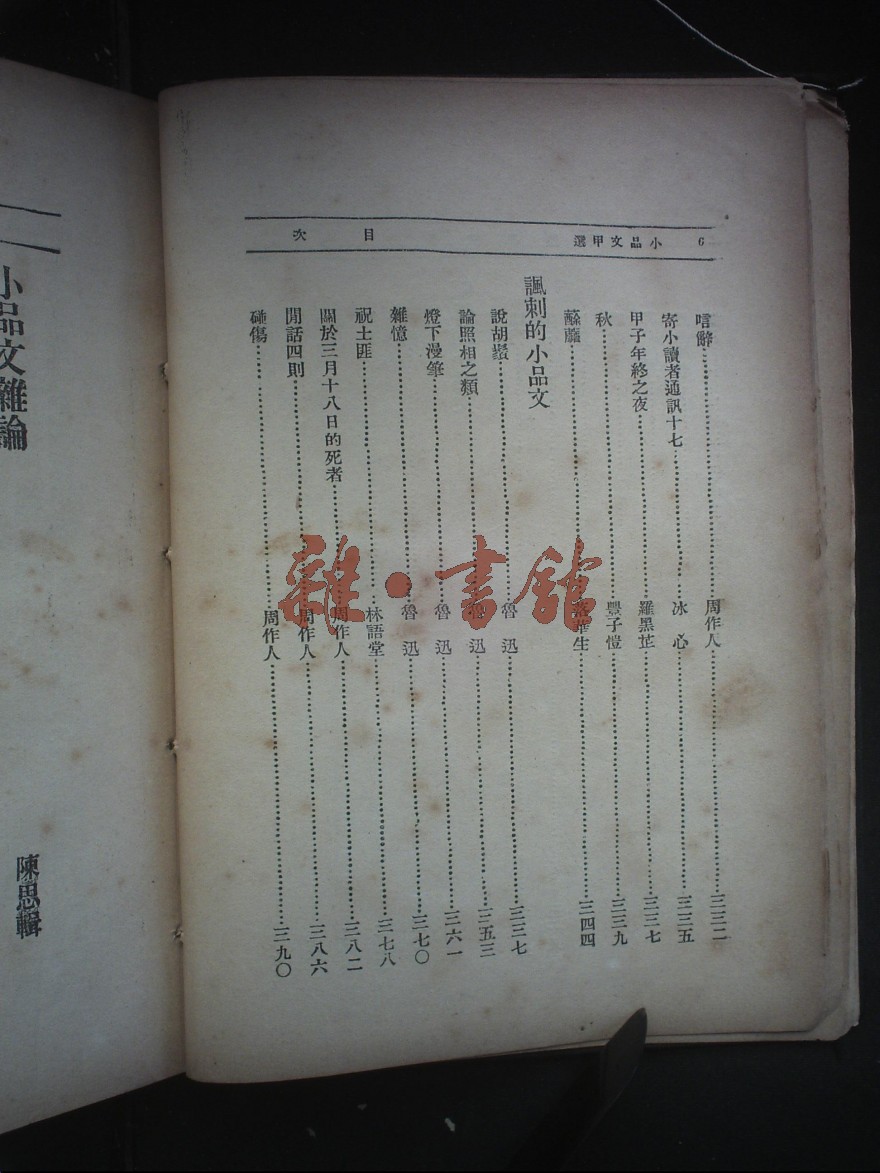 6 小品文甲選 目次
唁辭……周作人……三三二
寄小讀者通訊十七……冰心……三三五
甲子年終之夜……羅黑芷……三三七
秋……豐子愷……三三九
……落華生……三四四
諷刺的小品文
說胡鬚……魯迅……三三七
論照相之類……魯迅……三五三
燈下漫筆……魯迅……三六一
雜憶……魯迅……三七〇
祝土匪……林語堂……三七八
關於三月十八日的死者……周作人……三八二
閒話四則……周作人……三八六
碰傷……周作人……三九〇
小品文雜論
陳思輯
雜·書館